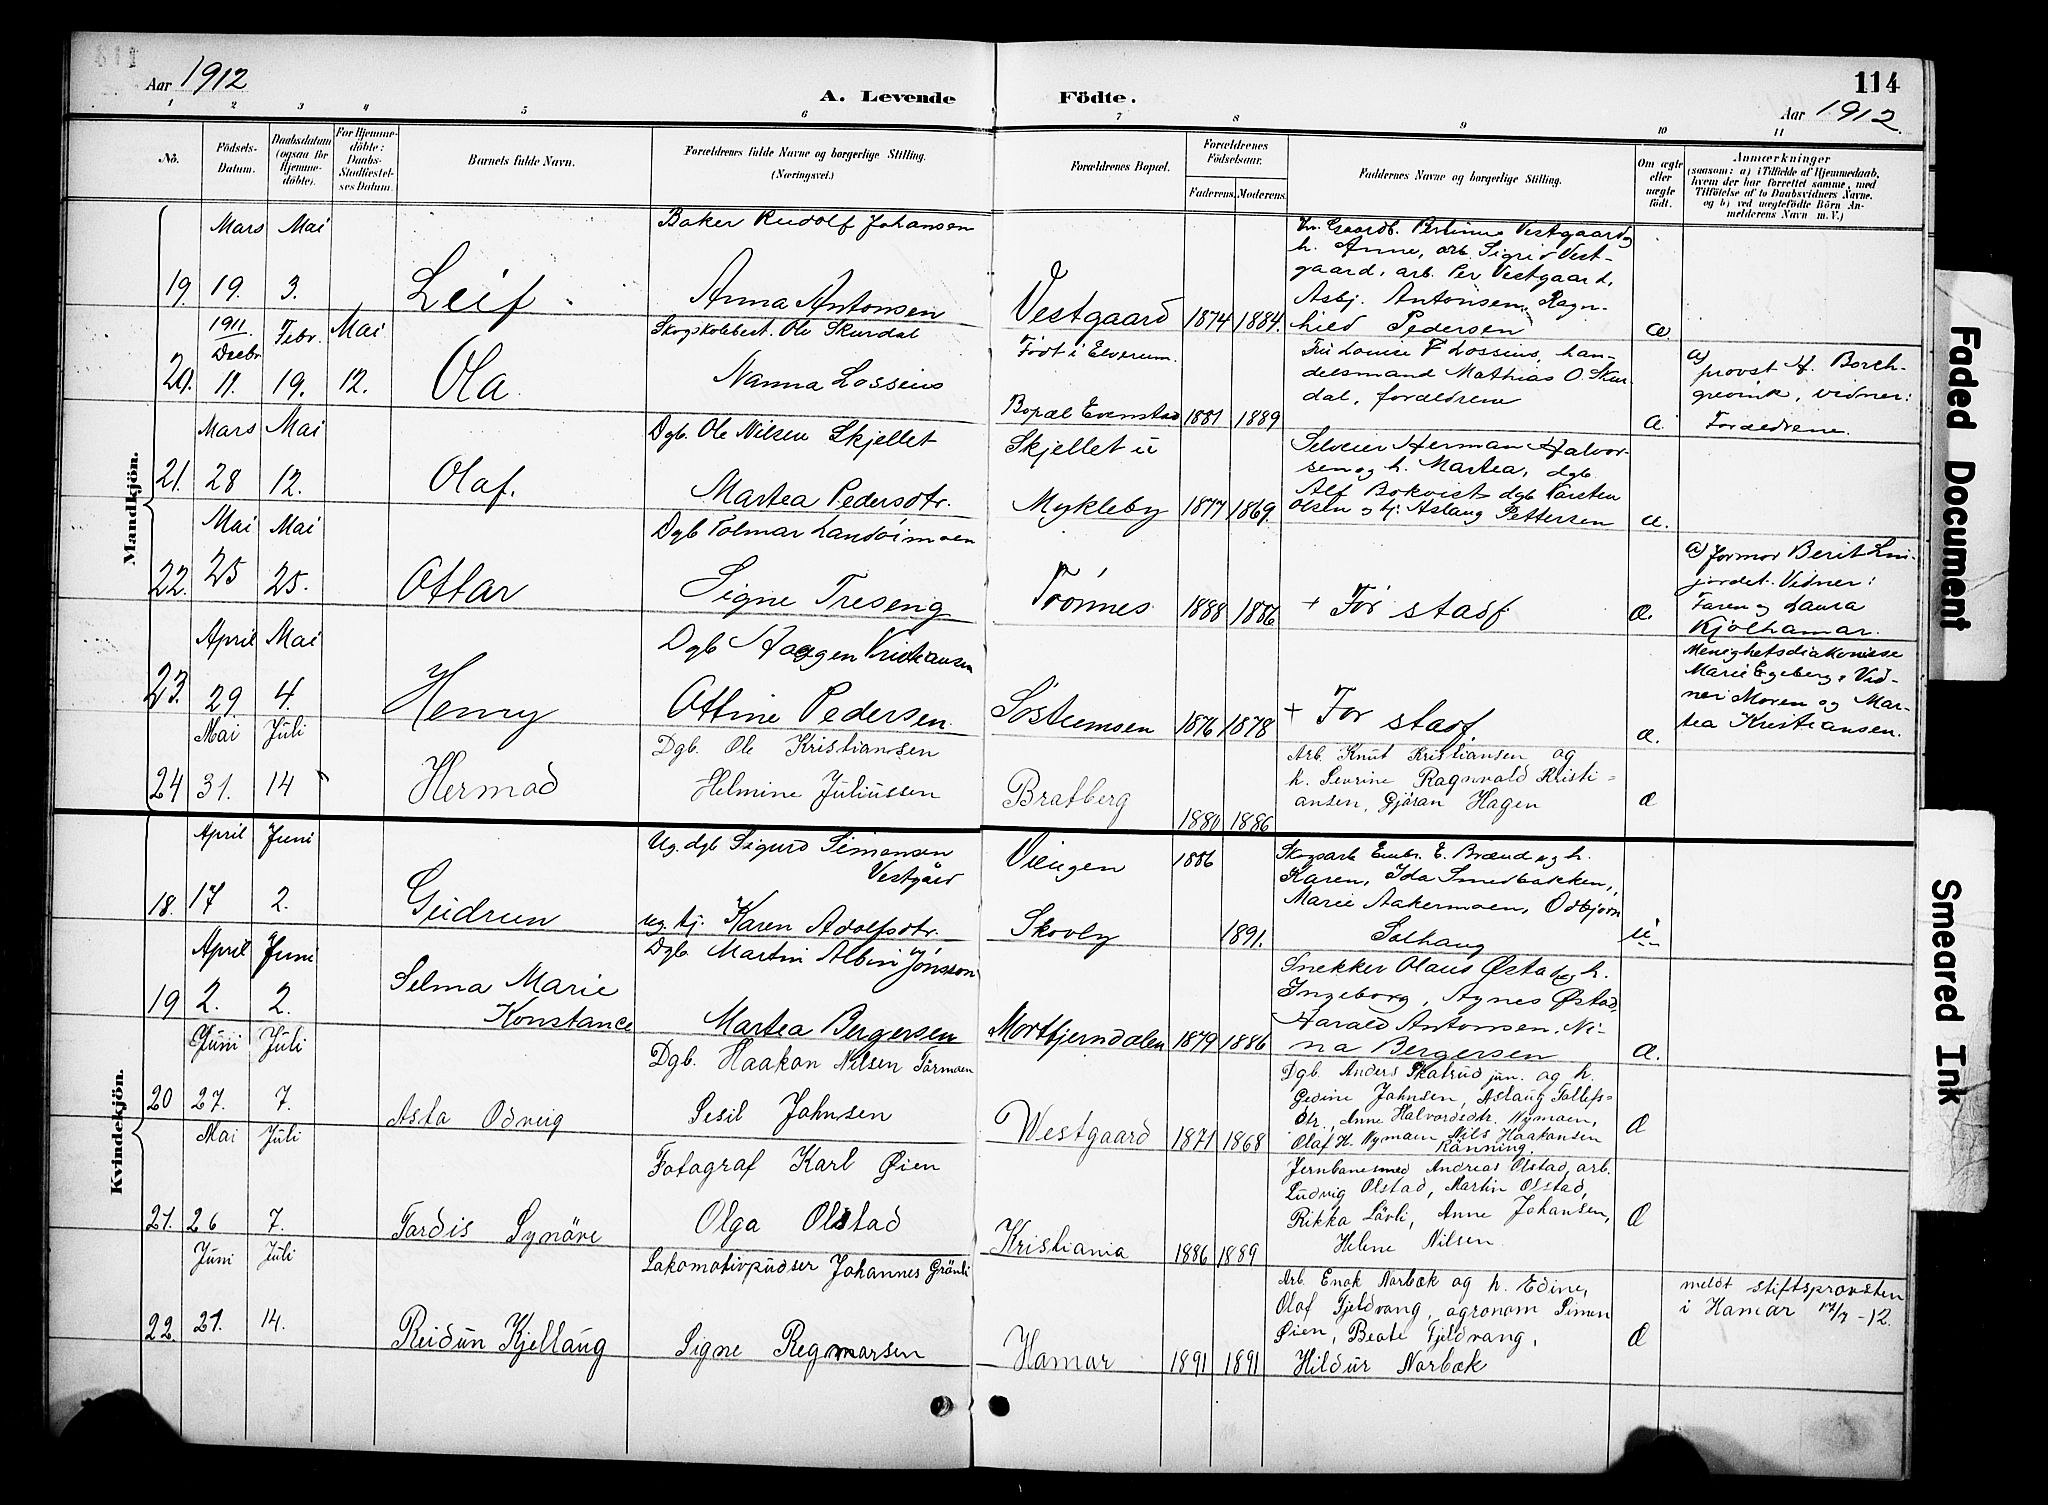 Aar 1912
A. Levende Födte.
114
Aar 1912.
1 2 3 4 5 6 7 8 9 10 11
No.
Födsels-
Datum.
Daabsdatum
(ogsaa for
Hjemme-
döbte).
For Hjemme-
döbte:
Daabs-
Stadfæstel-
ses Datum.
Barnets fulde Navn.
Forældrenes fulde Navne og borgerlige Stilling.
(Næringsvei.)
Forældrenes Bopæl.
Forældrenes
Födselsaar.
Faderens. Moderens.
Faddernes Navne og borgerlige Stilling.
Om ægte
eller
uægte
födt.
Anmærkninger
(saasom: a) i Tilfælde af Hjemmedaab,
hvem der har forrettet samme, med
Tilföielse af to Daabsvidners Navne,
og b) ved uægtefödte Börn An-
melderens Navn m. V.)
Mandkjön.
19. Mars 19. Mai 3.
Leif
Baker Rudolf Johansen
Anna Antonsen
Vestgaard 1874 1884.
Gaardb. Vestgaard og
h. Anne, arb. Sigrid Vest-
gaard, arb. Per Vestgaard,
Asbj. Antonsen, Ragn-
hild Pedersen
æ.
20. 1911 Decbr 11. Febr. 19. Mai 12.
Ola
Ole Skurdal
Nanna Lossius
Født i Elverum.
Bopæl Evenstad 1881 1889
Fru Louise Lossius, han-
delsmand Mathias O. Skur-
dal, forældrene
æ.
a)
provst H. Borch-
grevink, vidner:
Forældrene.
21. Mars 28 Mai 12.
Olaf.
Dgb. Ole Nilsen Skjellet
Martea Pedersdtr.
Skjellet u
Mykleby 1877 1869.
Selveier Herman Halvor-
sen og h. Martea, dgb
Alf Bokvist dgb Karsten
Olsen og pj. Aslaug Pettersen
æ.
22. Mai 25 Mai 25.
Ottar
Dgb Tolmar Landsimoen
Signe Treseng
Trönnes 1888 1886
+ Før stadf
æ.
a) formor Berit Lni-
jordet. Vidner:
Faren og Laura
Kjølhamar.
23. April 29 Mai 4.
Henry
Dgb Haagen Kristiansen
Ottine Pedersen
Söstumsen 1876 1878
+ Før stadf.
æ.
Menighetsdiakonisse
Marie Egeberg, Vid-
ner: Moren og Mar-
tea Kristiansen.
24 Mai 31. Juli 14
Hermod
Dgb. Ole Kristiansen
Helmine Juliussen
Bratberg 1880 1886
Arb. Knut Kristiansen og
h. Sevrine Ragnvald Kristi-
ansen, Gjöran Hagen
æ
Kvindekjön.
18. April 17 Juni 2.
Gudrun
Ug. dgb Sigurd Simensen
Vestgård
ug. pj. Karen Adolfsdtr.
Viengen 1886
Skovly 1891.
Skogsarb Embr. E. Brænd og h.
Karen, Ida Smedbakken,
Marie Aakermoen, Odbjörn
Solhaug
u
19 April 2. Juni 2.
Selma Marie
Konstance
Dgb. Martin Albin Jönsson
Martea Bergersen
Mortkjerndalen 1879 1886
Snekker Olaus Østad og h.
Ingeborg, Agnes Østad,
Harald Antonsen, Ni-
na Bergersen
æ.
20 Juni 27. Juli 7.
Asta Odveig
Dgb. Haakon Nilsen Törmoen
Sesil Johnsen
Westgaard 1871 1868
Dgb. Anders Skatrud jun. og h.
Gedine Johnsen, Aslaug Tollefs-
dtr., Anne Halvorsdtr. Nymoen,
Olaf H. Nymoen Nils Haakonsen
Rönning.
æ
21. Mai 26 Juli 7.
Tordis Synöve
Fotograf Karl Øien
Olga Olstad
Kristiania 1886 1889
Jernbanesmed Andreas Olstad, arb.
Ludvig Olstad, Martin Olstad,
Rikka Lövli, Anne Johansen,
Helene Nilsen.
æ
22. Juni 21. Juli 14.
Reidun Kjellaug
Lokomotivpudser Johannes Grönli
Signe Regmarsen
Hamar 1891 1891
Arb. Enok Norbæk og h. Edine,
Olaf Fjeldvang, agronom Simen
Øien, Beate Fjeldvang,
Hildur Norbæk
æ
meldt stiftsprovsten
i Hamar 17/7 -12.
Faded Document
Smeared Ink